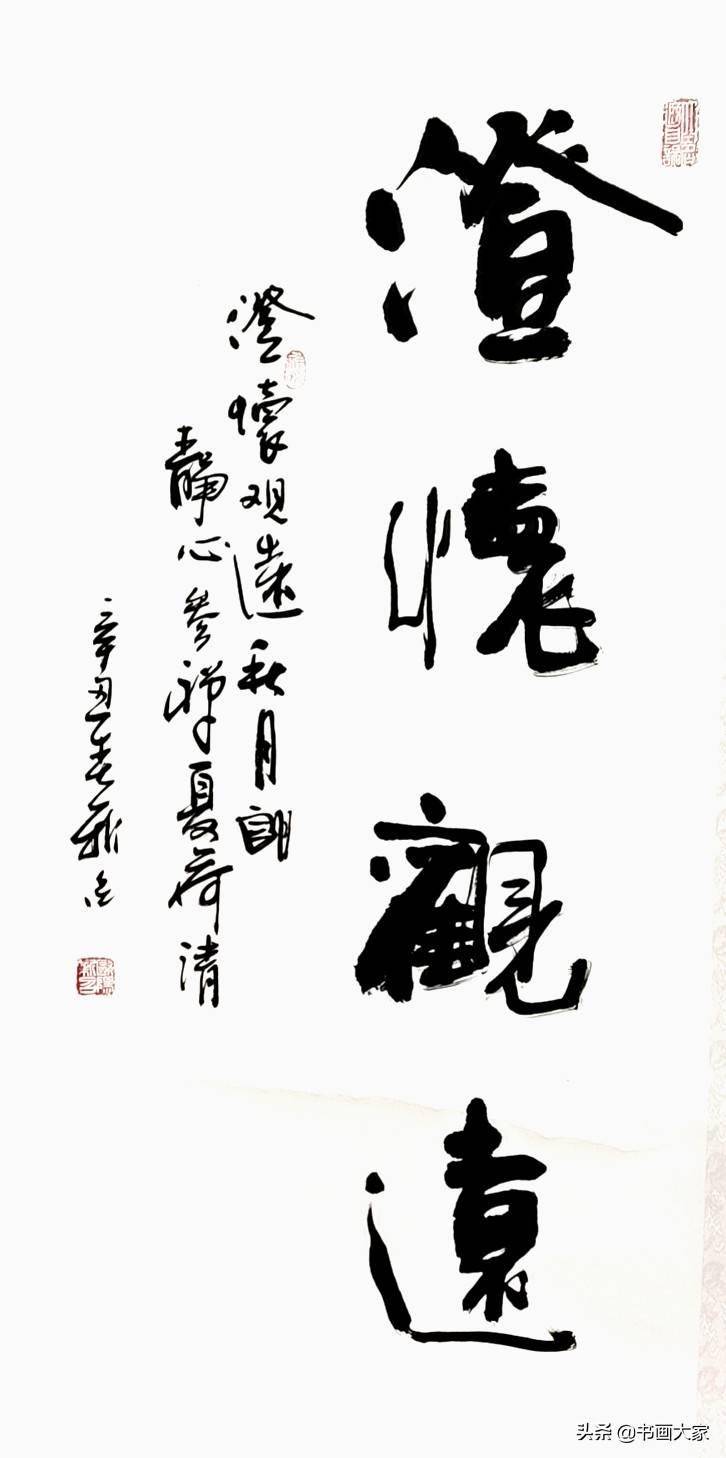 澄懷觀遠
澄懷观遠秋月朗
靜心参禅夏荷清
辛丑春
头条 @书画大家